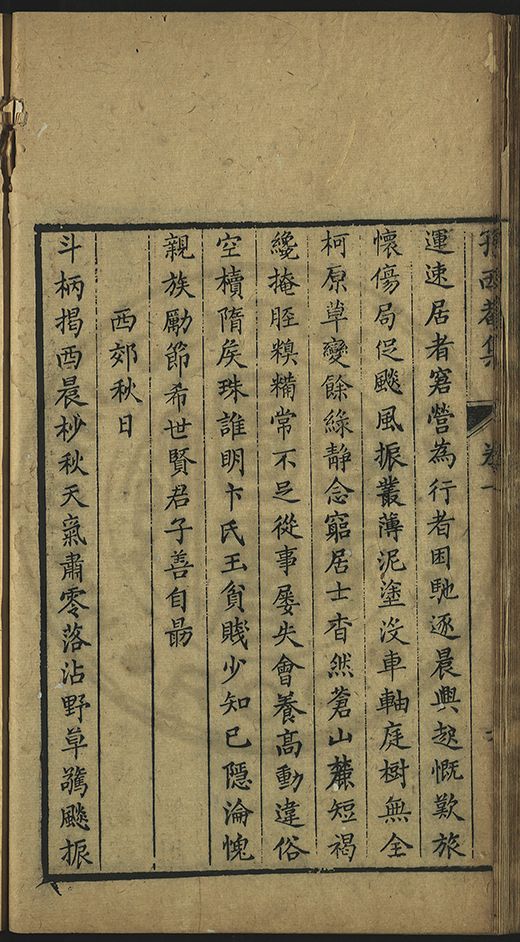 孫西菴集 卷一
運速居者窘營為行者困馳逐晨興起慨歎旅
懷傷局促飈風振叢薄泥塗沒車軸庭樹無全
柯原草變餘綠静念窮居士杳然蒼山麓短褐
纔掩脛糗糒常不足從事屡失會養高動違俗
空櫝隋矦珠誰明卞氏玉貧賤少知己隱淪愧
親族勵節希世賢君子善自勗
西郊秋日
斗柄揭酉晨杪秋天氣肅零落沾野草驚飈振